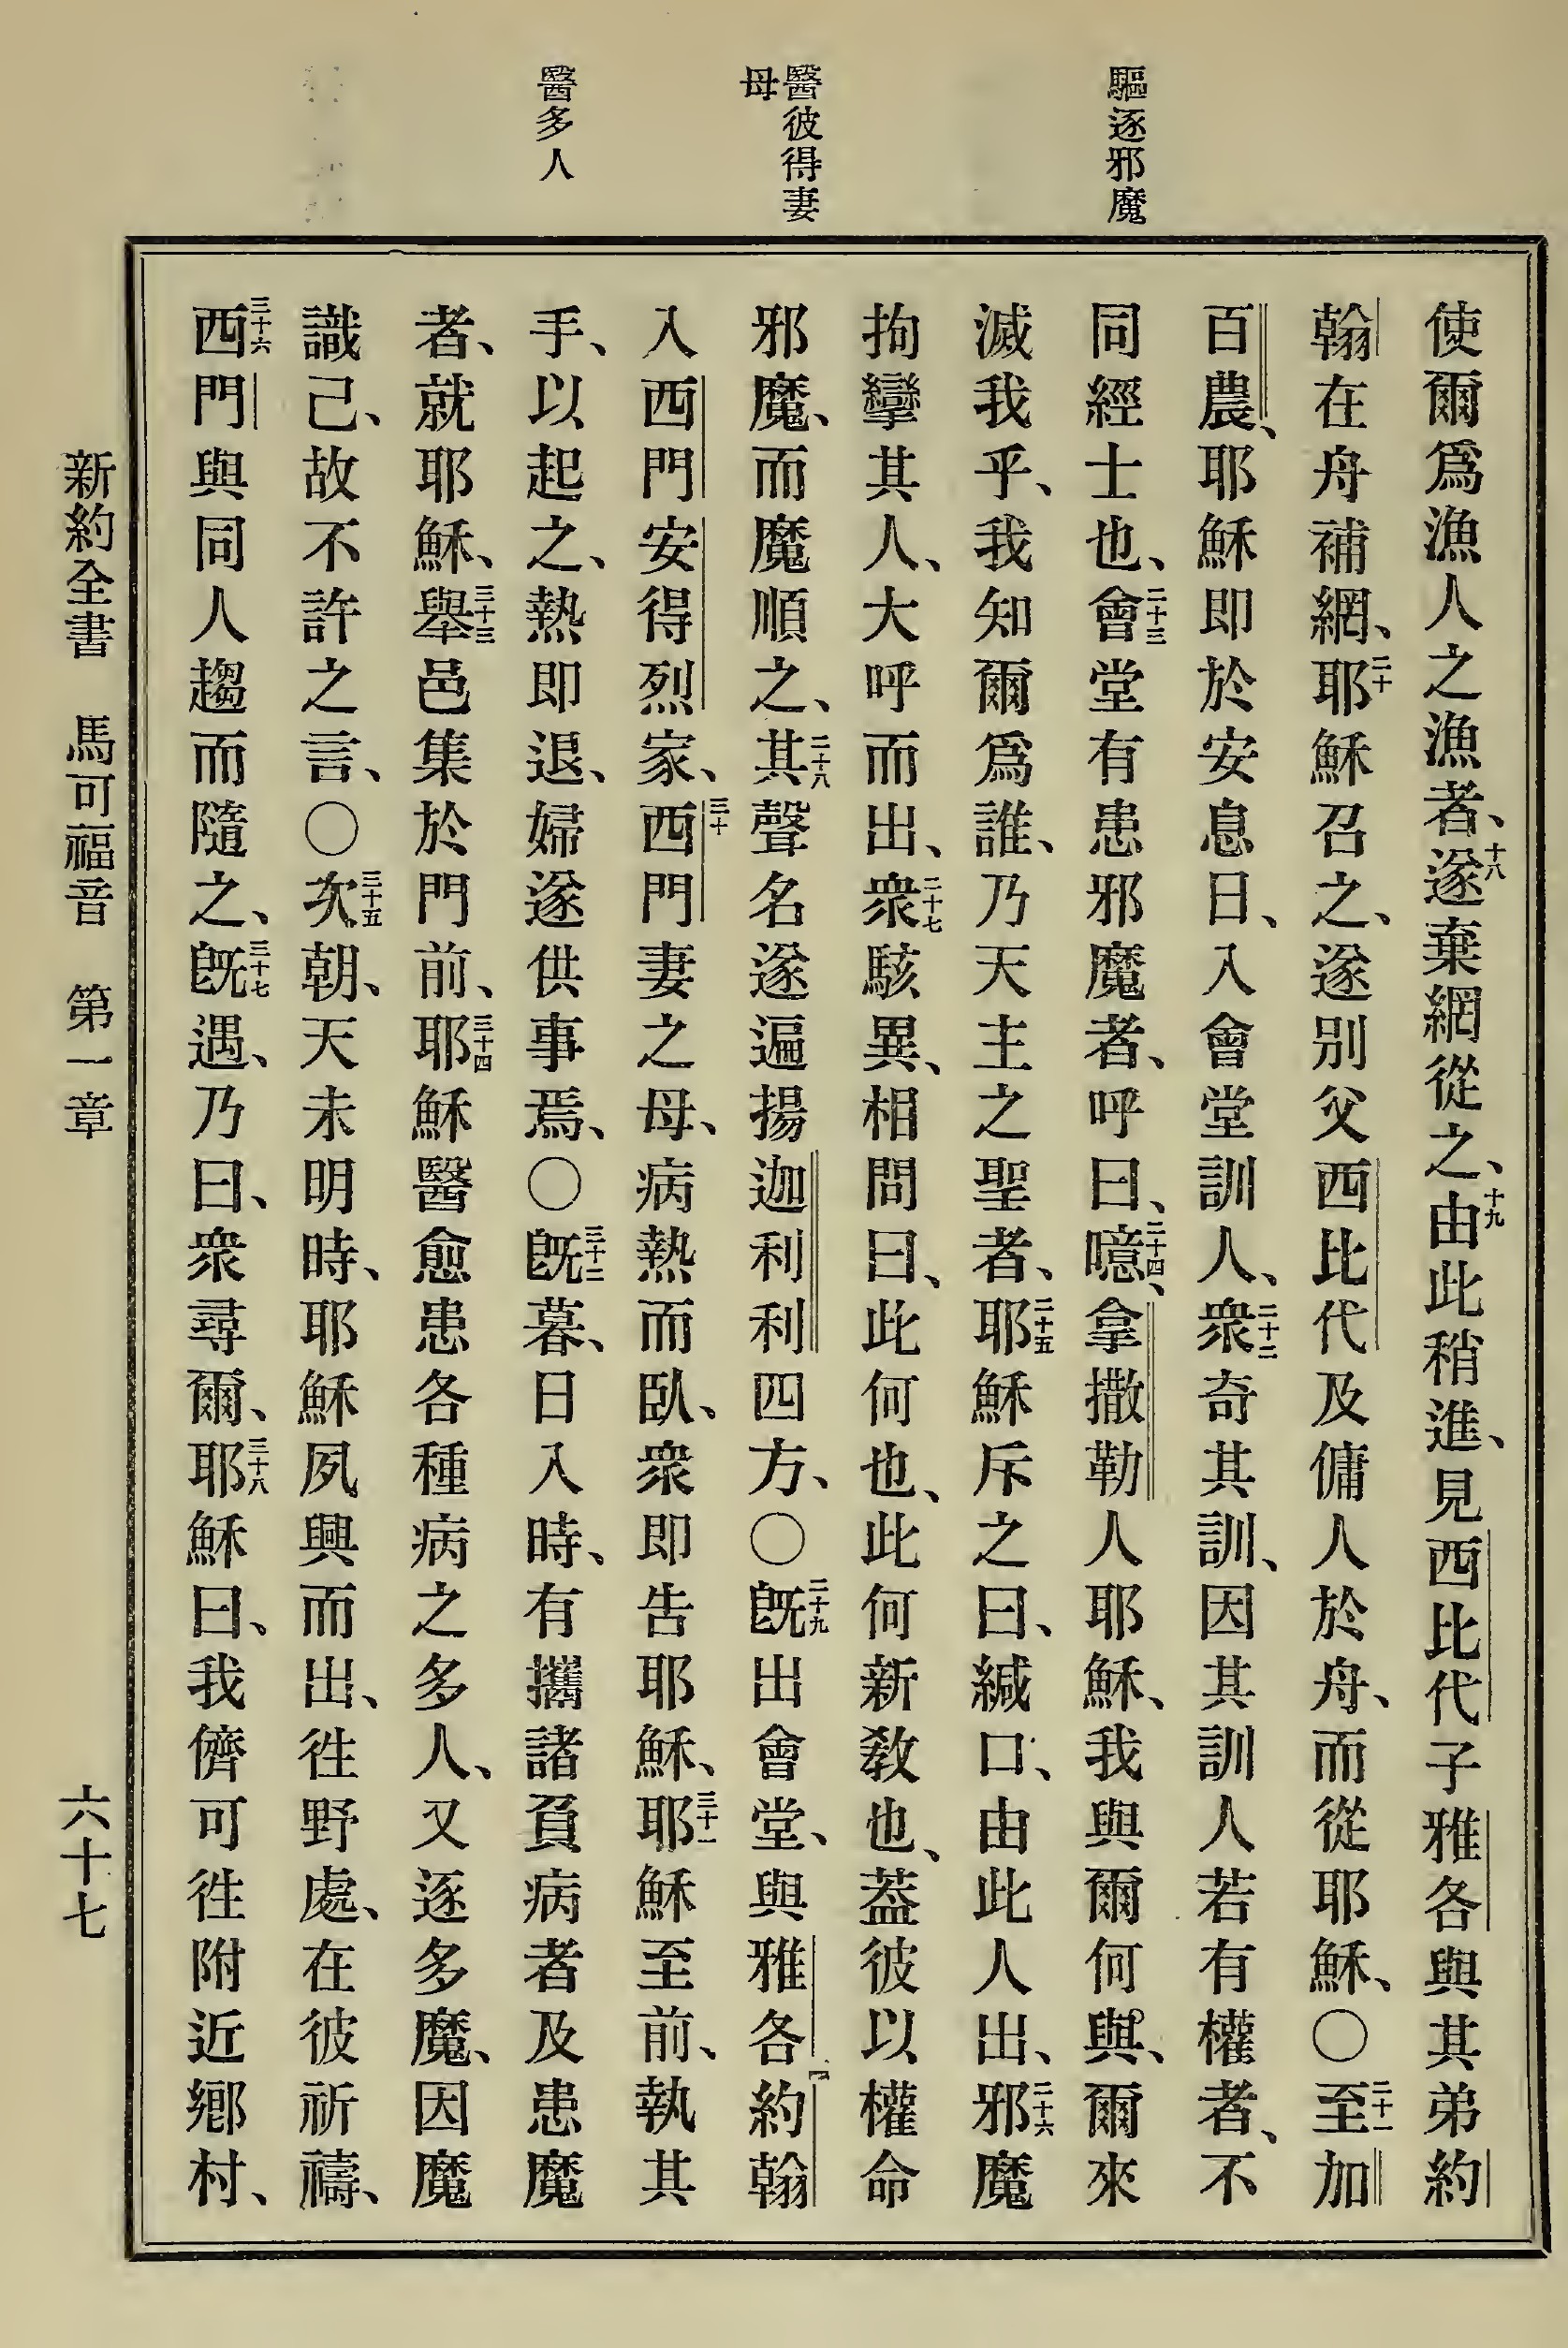 驅逐邪魔
醫彼得妻
母
醫多人
使爾爲漁人之漁者、十八遂棄網從之、十九由此稍進、見西比代子雅各與其弟約
翰在舟補網、二十耶穌召之、遂別父西比代及傭人於舟、而從耶穌、〇二十一至加
百農、耶穌即於安息日、入會堂訓人、二十二衆奇其訓、因其訓人若有權者、不
同經士也、二十三會堂有患邪魔者、呼曰、二十四噫、拿撒勒人耶穌、我與爾何與、爾來
滅我乎、我知爾爲誰、乃天主之聖者、二十五耶穌斥之曰、緘口、由此人出、二十六邪魔
拘攣其人、大呼而出、二十七衆駭異、相問曰、此何也、此何新教也、蓋彼以權命
邪魔、而魔順之、二十八其聲名遂遍揚迦利利四方、〇二十九旣出會堂、與雅各約翰
入西門安得烈家、三十西門妻之母、病熱而臥、衆即告耶穌、三十一耶穌至前、執其
手、以起之、熱即退、婦遂供事焉、〇三十二旣暮、日入時、有攜諸負病者及患魔
者、就耶穌、三十三舉邑集於門前、三十四耶穌醫愈患各種病之多人、又逐多魔、因魔
識己、故不許之言、〇三十五次朝、天未明時、耶穌夙興而出、徃野處、在彼祈禱、
三十六西門與同人趨而隨之、三十七旣遇、乃曰、衆尋爾、三十八耶穌曰、我儕可徃附近鄉村、
新約全書 馬可福音 第一章 六十七